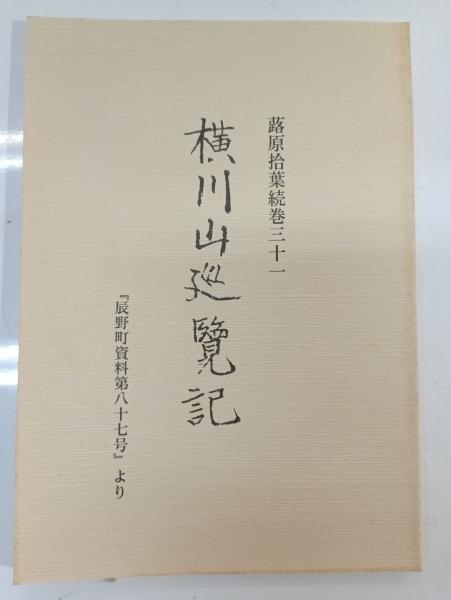 蕗原拾葉続巻三十一
横川山廵覽記
『辰野町資料第八十七号』より